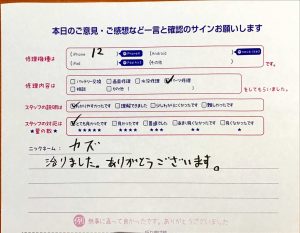 本日のご意見・ご感想など一言と確認のサインお願いします
修理機種は
iPhone 12
Android
iPad
その他
です。
修理内容は
バッテリー交換 画面修理 水没修理 パーツ修理
相談 その他
をしてもらいました。
スタッフの説明は
わかりやすかったです 理解できました 少しわかりにくかったです 難しかったです
スタッフの対応は
★星の数★
とても良かったです 良かったです 普通でした あまり良くなかったです 良くなかったです
★★★★★ ★★★★ ★★★ ★★ ★
ニックネーム: カズ
治りました。ありがとうございます。
無事に直って良かったです。ありがとうございました